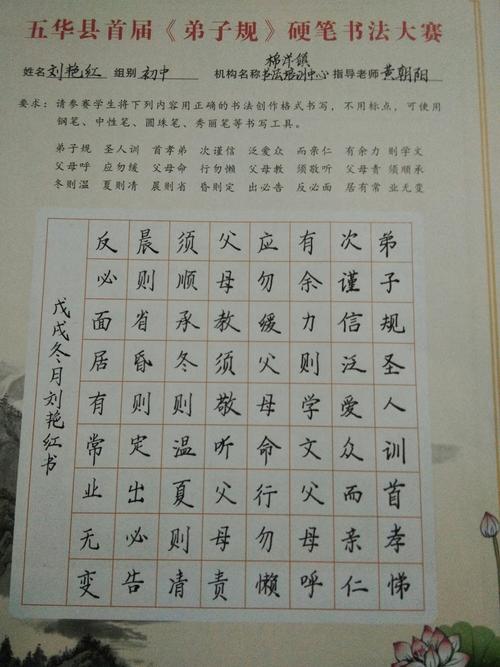 五华县首届《弟子规》硬笔书法大赛
姓名刘艳红 组别初中 机构名称棉洋镇书法培训中心 指导老师黄朝阳
要求：请参赛学生将下列内容用正确的书法创作格式书写，不用标点，可使用
钢笔、中性笔、圆珠笔、秀丽笔等书写工具。
弟子规 圣人训 首孝弟 次谨信 泛爱众 而亲仁 有余力 则学文
父母呼 应勿缓 父母命 行勿懒 父母教 须敬听 父母责 须顺承
冬则温 夏则凊 晨则省 昏则定 出必告 反必面 居有常 业无变
弟子规圣人训首孝悌
次谨信泛爱众而亲仁
有余力则学文父母呼
应勿缓父母命行勿懒
父母教须敬听父母责
须顺承冬则温夏则凊
晨则省昏则定出必告
反必面居有常业无变
戊戌冬月刘艳红书